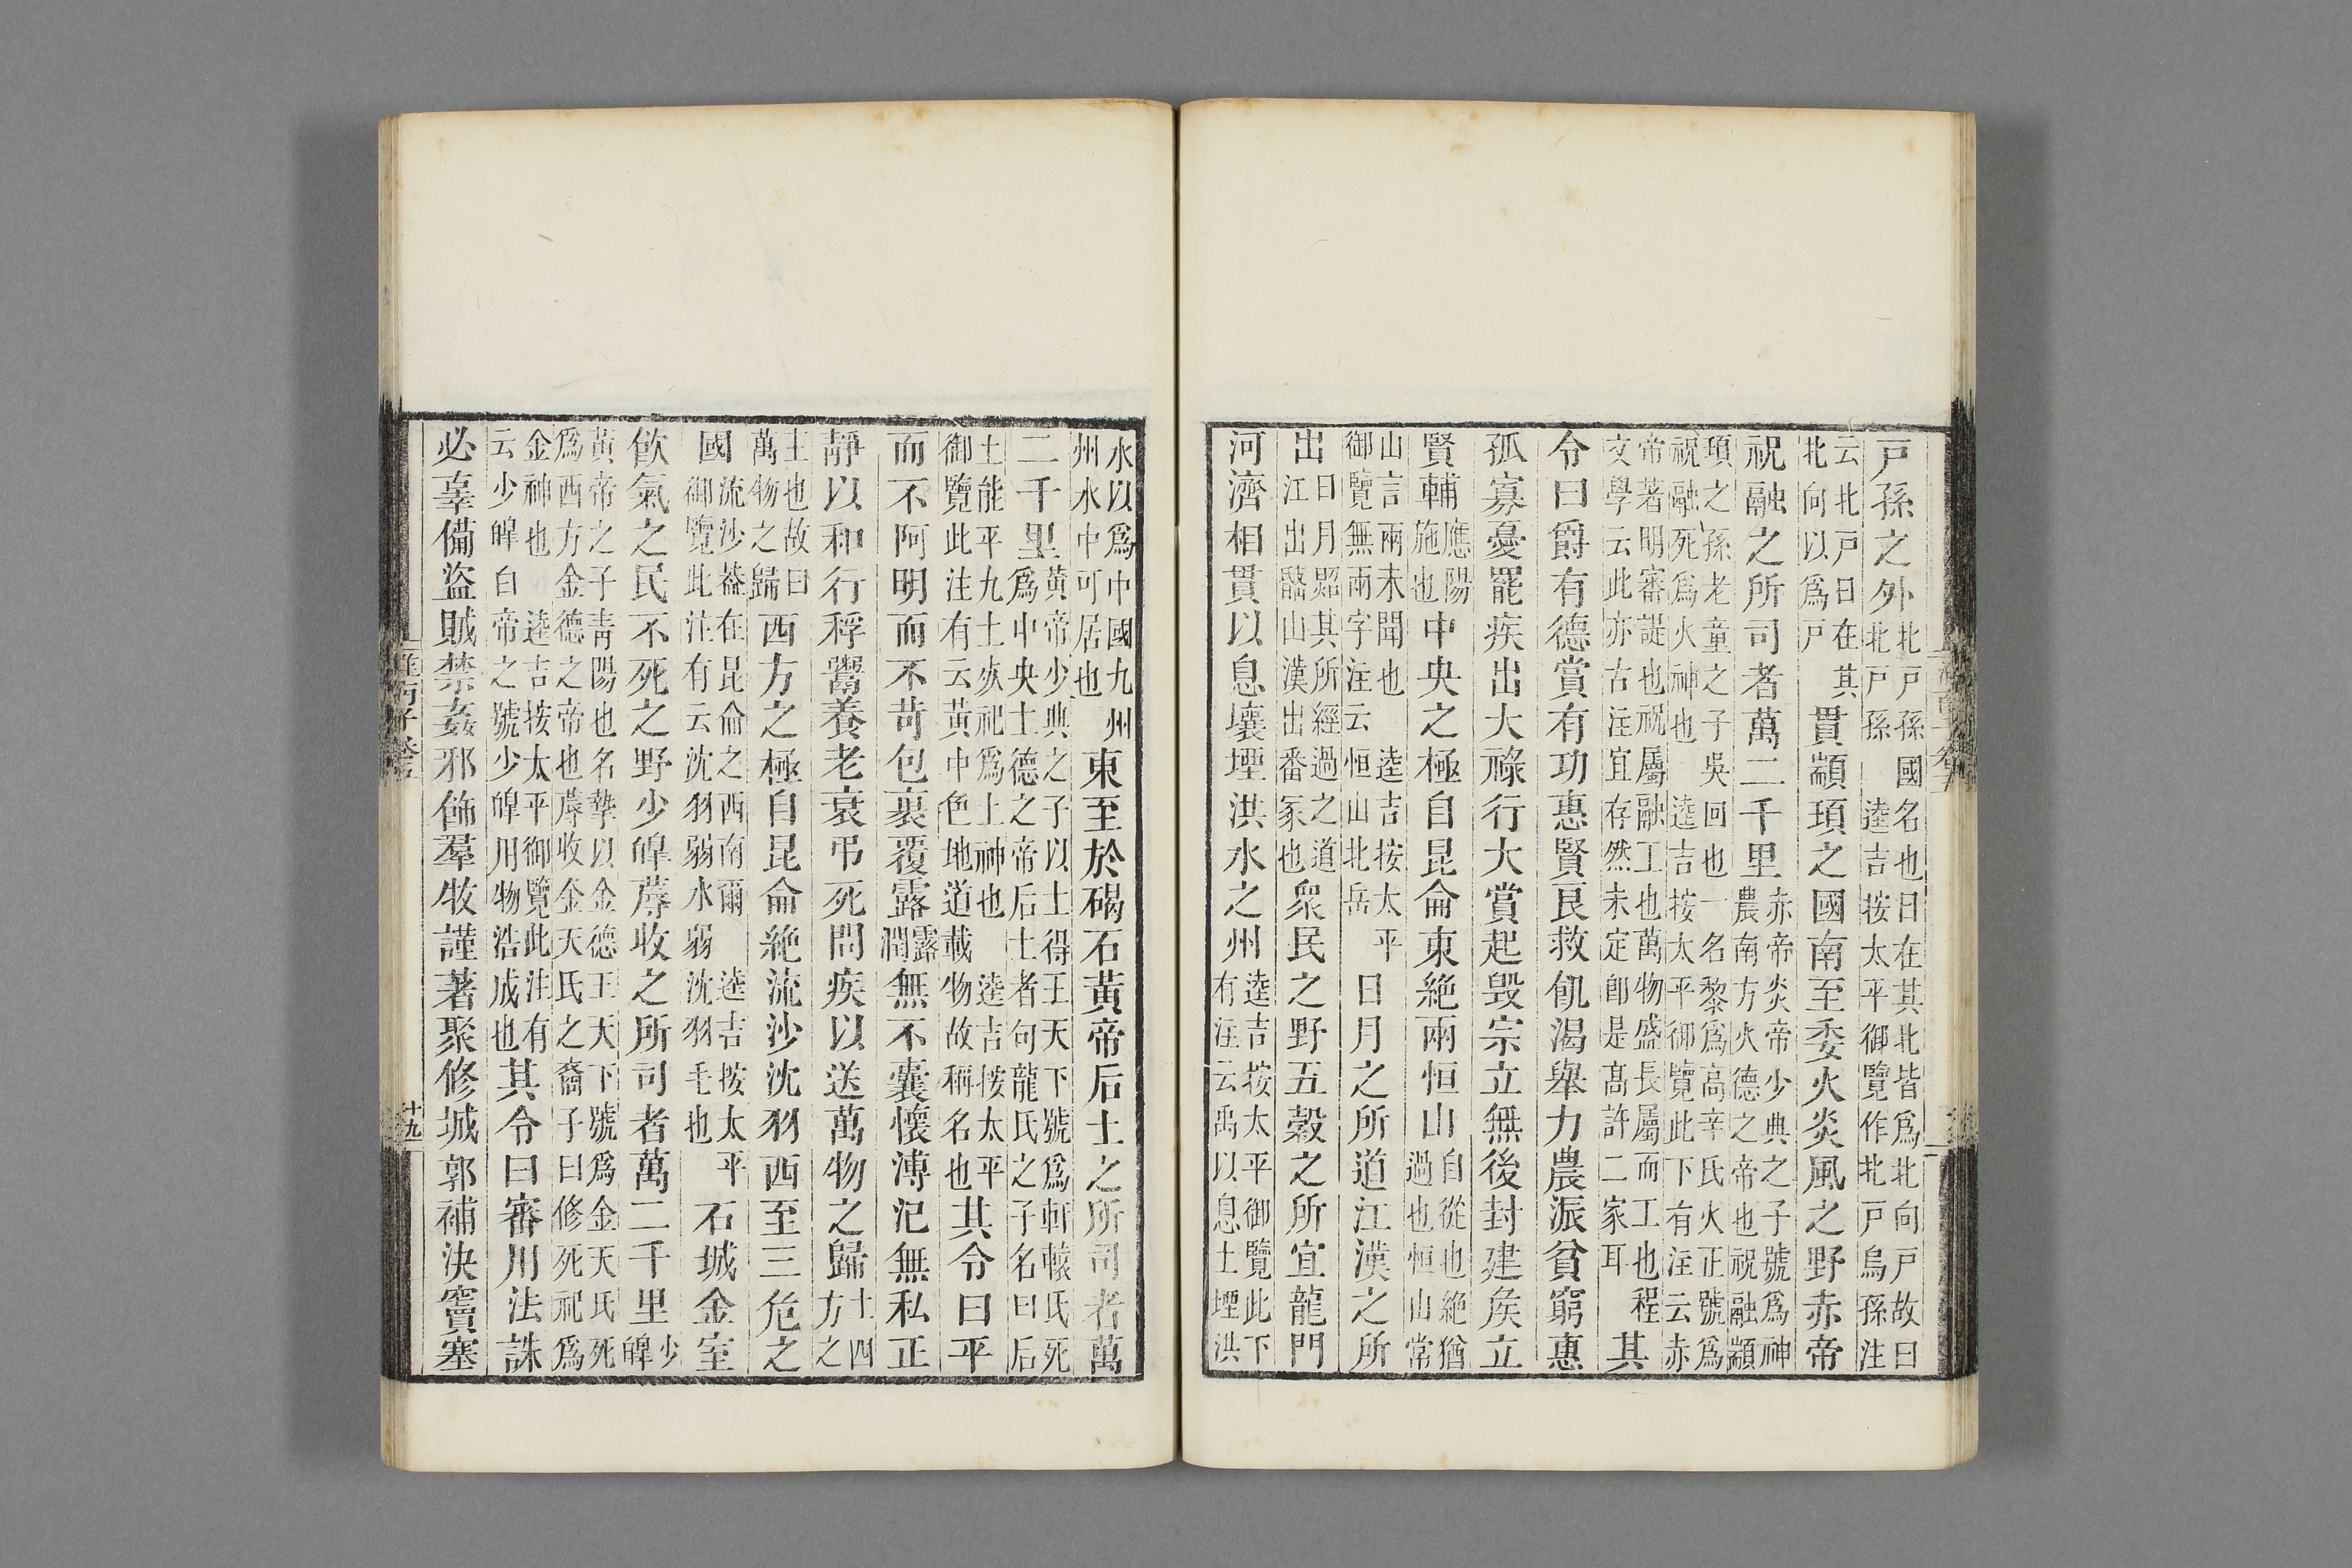 戸孫之外北戸孫國名也日在其北皆爲北向戸故曰北戸孫 逵吉按太平御覽作北戸烏孫注
云北戸曰在其北向以爲戸貫顓頊之國南至委火炎風之野赤帝
祝融之所司者萬二千里赤帝炎帝少典之子號爲神農南方火德之帝也祝融顓
頊之孫老童之子吳回也一名黎爲高辛氏火正號爲祝融死爲火神也 逵吉按太平御覽此下有注云赤
帝著明審諟也祝屬融工也萬物盛長屬而工也程文學云此亦古注宜存然未定卽是高許二家耳其
令曰爵有德賞有功惠賢良救飢渴舉力農振貧窮惠
孤寡憂罷疾出大祿行大賞起毀宗立無後封建矦立
賢輔應陽施也中央之極自昆侖東絶兩恒山自從也絶猶過也恒山常
山言兩未聞也 逵吉按太平御覽無兩字注云恒山北岳日月之所道江漢之所
出日月照其所經過之道江出山漢出番冢也衆民之野五穀之所宜龍門
河濟相貫以息壤堙洪水之州逵吉按太平御覽此下有注云禹以息土堙洪
水以爲中國九州州水中可居也東至於碣石黃帝后土之所司者萬
二千里黃帝少典之子以土得王天下號爲軒轅氏死爲中央土德之帝后土者句龍氏之子名曰后
土能平九土死祀爲土神也 逵吉按太平御覽此注有云黃中色地道載物故稱名也其令曰平
而不阿明而不苛包裹覆露露潤無不囊懷溥氾無私正
靜以和行稃鬻養老衰弔死問疾以送萬物之歸土四方之
土也故曰萬物之歸西方之極自昆侖絶流沙沈羽西至三危之
國流沙葢在昆侖之西南爾 逵吉按太平御覽此注有云沈羽弱水弱沈羽毛也石城金室
飮氣之民不死之野少皥蓐收之所司者萬二千里少皥
黃帝之子靑陽也名摯以金德王天下號爲金天氏死爲西方金德之帝也蓐收金天氏之裔子曰修死祀爲
金神也 逵吉按太平御覽此注有云少皥白帝之號少皥用物浩成也其令曰審用法誅
必辜備盜賊禁姦邪飾羣牧謹著聚修城郭補決竇塞
十九